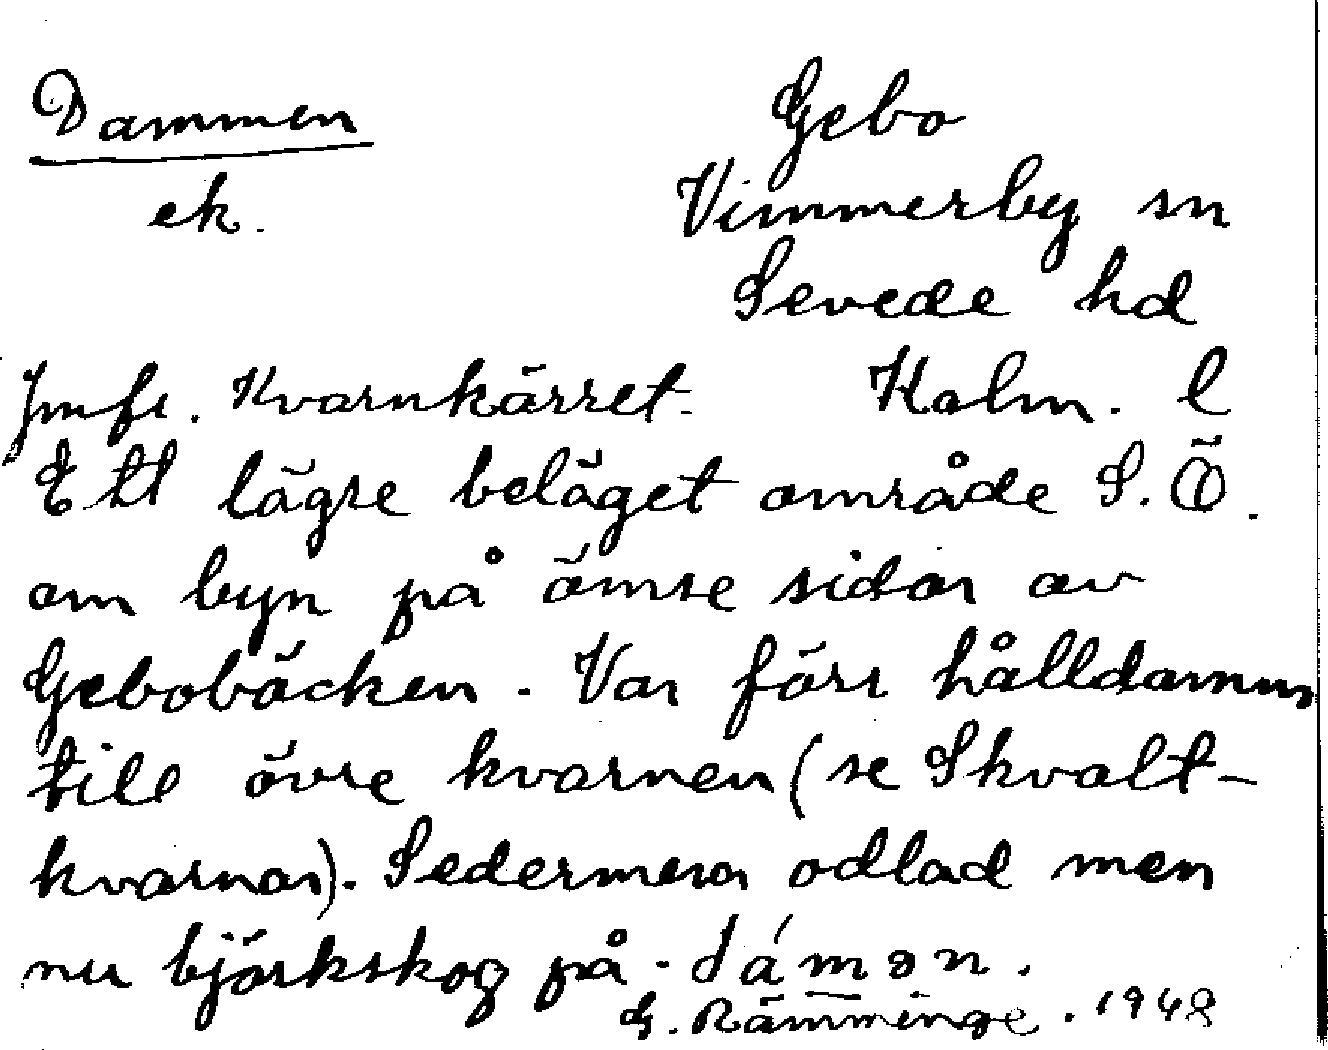 Dammen
ek.
Gebo
Vimmerby sn
Sevede hd
Kalm. l
Jmfr. Kvarnkärret.
Ett lägre beläget område S.Ö.
om byn på ömse sidor av
Gebobäcken. Var förr hålldamm
till övre kvarnen (se Skvalt-
kvarnar). Sedermera odlad men
nu björkskog på. dámən.
G. Rämminge. 1948